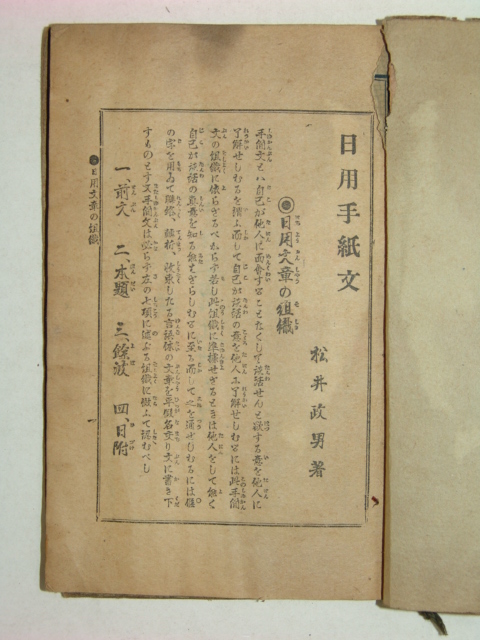 日用手紙文
松井政男著
◉日用文章の組織
手簡文とハ自己が他人に面會することなくして談話せんと欲する意を他人に
了解せしむるを謂ふ而して自己が談話の意を他人に了解せしむるには此手簡
文の組織に依らざるべからず若し此組織に準據せざるときは他人をして能く
自己が談話の意を知る能はざらしむるに至る而して之を通ぜしむるには
の字を用ゐて聯絡、轉折、收束したる言語体の文章を平假名交り文に書き下
すものとす又手簡文は必らず左の七項に依ふる組織に倣ふて認むべし
一、前文 二、本題 三、餘波 四、日附
◉日用文章の組織